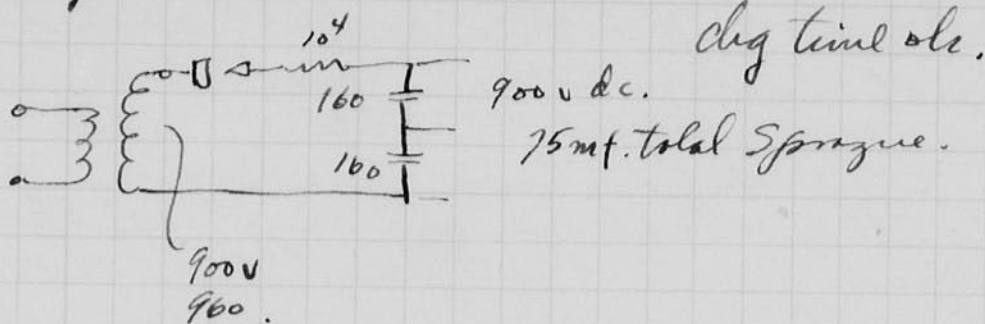 chg time ok.
10⁴
160
900 v dc.
75 mf. total Sprague.
160
900 v
960.